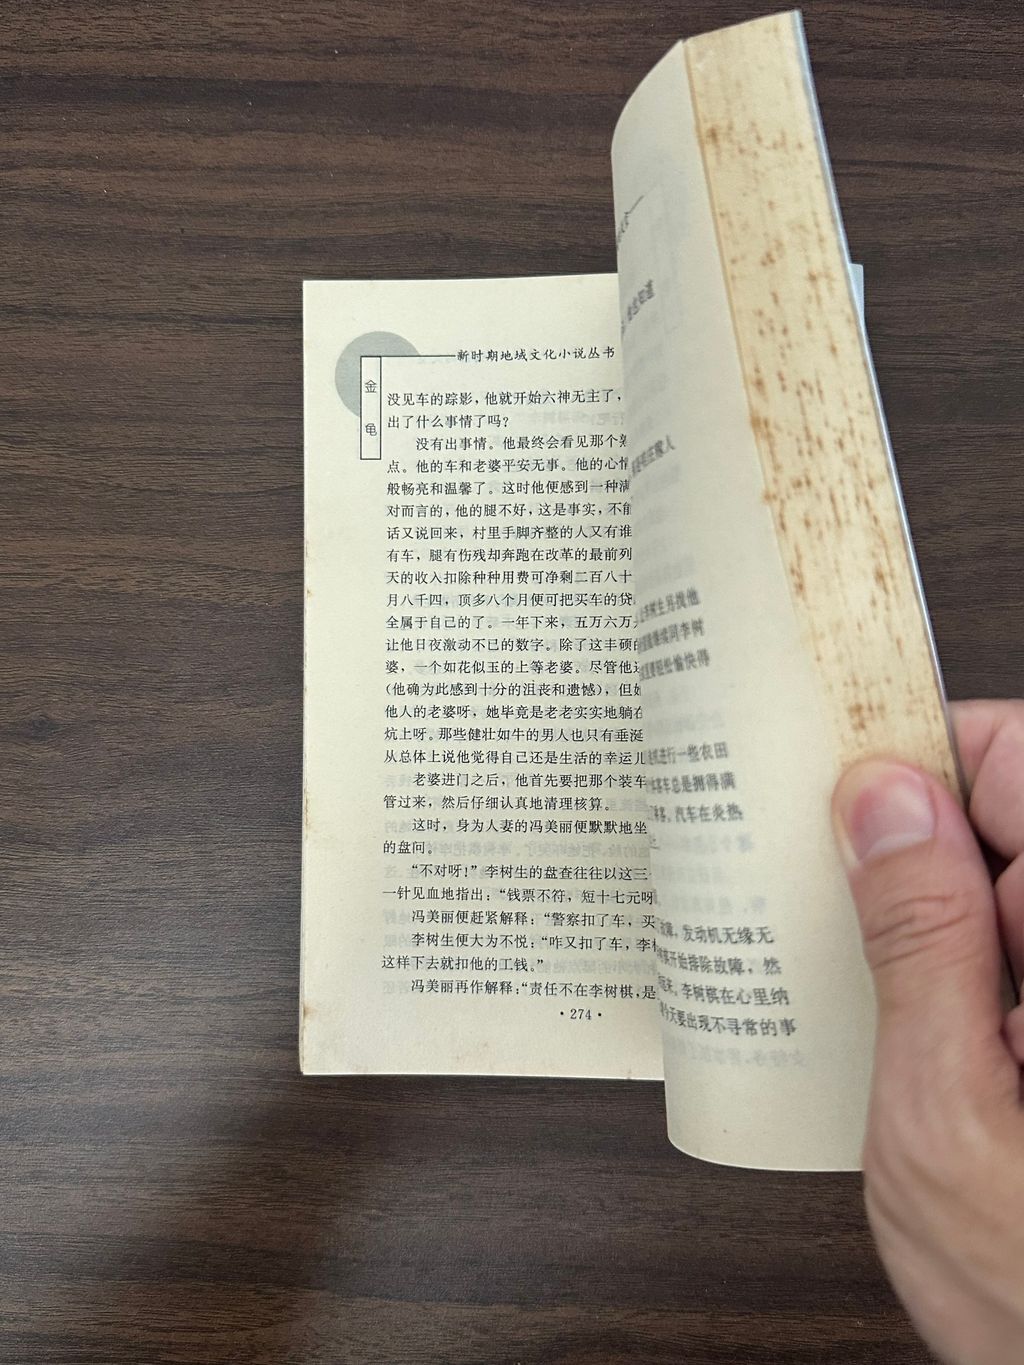 新时期地域文化小说丛书
金龟
没见车的踪影，他就开始六神无主了，
出了什么事情了吗？
没有出事情。他最终会看见那个
点。他的车和老婆平安无事。他的心情
般畅亮和温馨了。这时他便感到一种满
对而言的，他的腿不好，这是事实，不能
话又说回来，村里手脚齐整的人又有谁
有车，腿有伤残却奔跑在改革的最前列
天的收入扣除种种用费可净剩二百八十
月八千四，顶多八个月便可把买车的贷
全属于自己的了。一年下来，五万六万
让他日夜激动不已的数字。除了这丰硕的
婆，一个如花似玉的上等老婆。尽管他
(他确为此感到十分的沮丧和遗憾)，但她
他人的老婆呀，她毕竟是老老实实地躺在
炕上呀。那些健壮如牛的男人也只有垂涎
从总体上说他觉得自己还是生活的幸运儿
老婆进门之后，他首先要把那个装车
管过来，然后仔细认真地清理核算。
这时，身为人妻的冯美丽便默默地坐
的盘问。
“不对呀！”李树生的盘查往往以这三
一针见血地指出：“钱票不符，短十七元呀
冯美丽便赶紧解释：“警察扣了车，买
李树生便大为不悦：“咋又扣了车，李
这样下去就扣他的工钱。”
冯美丽再作解释：“责任不在李树棋，是
·274·
他也知道
庄稼人
李树生另找他
继续同李树
要轻松愉快得
进行一些农田
客车总是拥得满
乘客，汽车在炎热
故障，发动机无缘无
棋开始排除故障，然
李树棋在心里纳
今天要出现不寻常的事